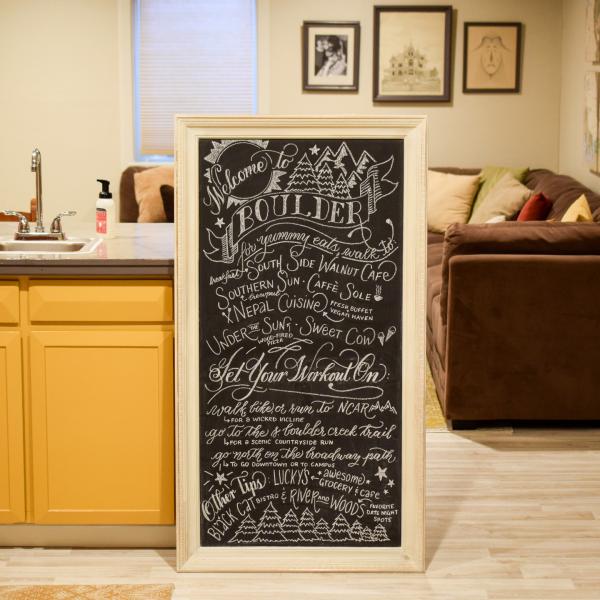 Welcome to
BOULDER
for yummy eats, walk to:
breakfast SOUTH SIDE WALNUT CAFE
SOUTHERN SUN · CAFFÈ SOLE
brewpub
NEPAL CUISINE FRESH BUFFET
VEGAN HAVEN
UNDER THE SUN · SWEET COW
WOOD-FIRED
PIZZA
Get Your Workout On:
walk, bike or run to NCAR
FOR A WICKED INCLINE
go to the s boulder creek trail
FOR A SCENIC COUNTRYSIDE RUN
go north on the broadway path
TO GO DOWNTOWN OR TO CAMPUS
Other Tips: LUCKY'S awesome
GROCERY & CAFE
BLACK CAT BISTRO & RIVER AND WOODS FAVORITE
DATE NIGHT
SPOTS